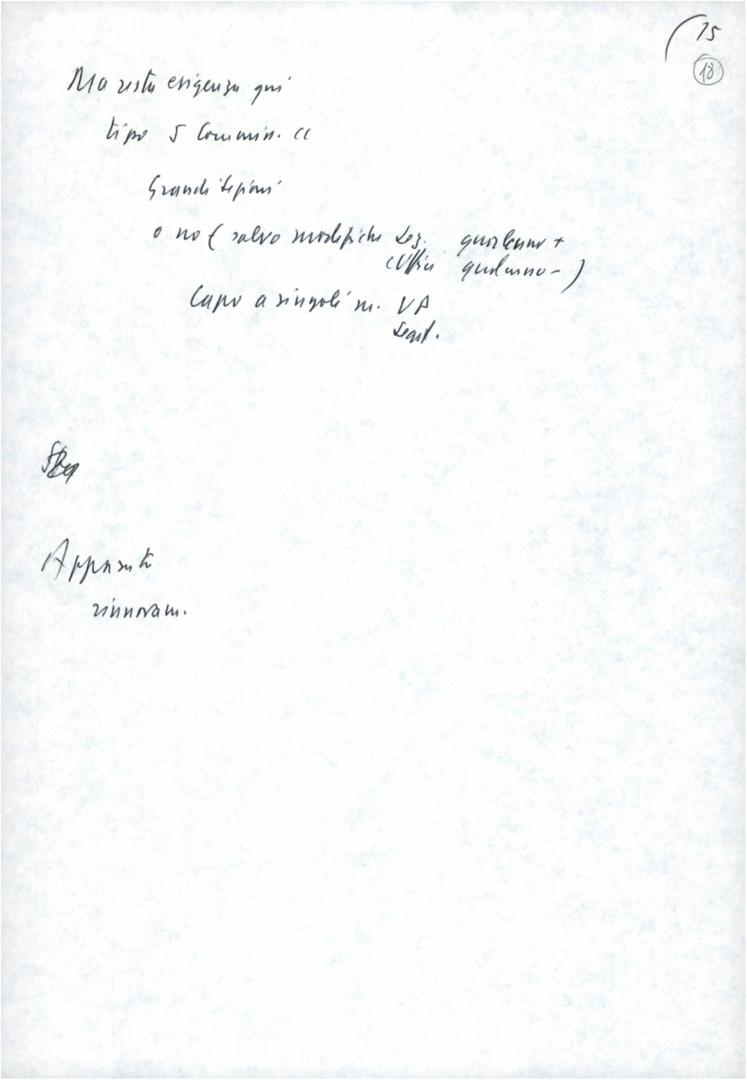 15
18
Ma resta esigenza qui
tipo 5 Commiss. CC
Grandi sezioni
o no ( salvo modifiche Seg. qualcuno +
(Uffici qualcuno - )
Capo a singoli m. VP
Segret.
Apparato
rinnovam.